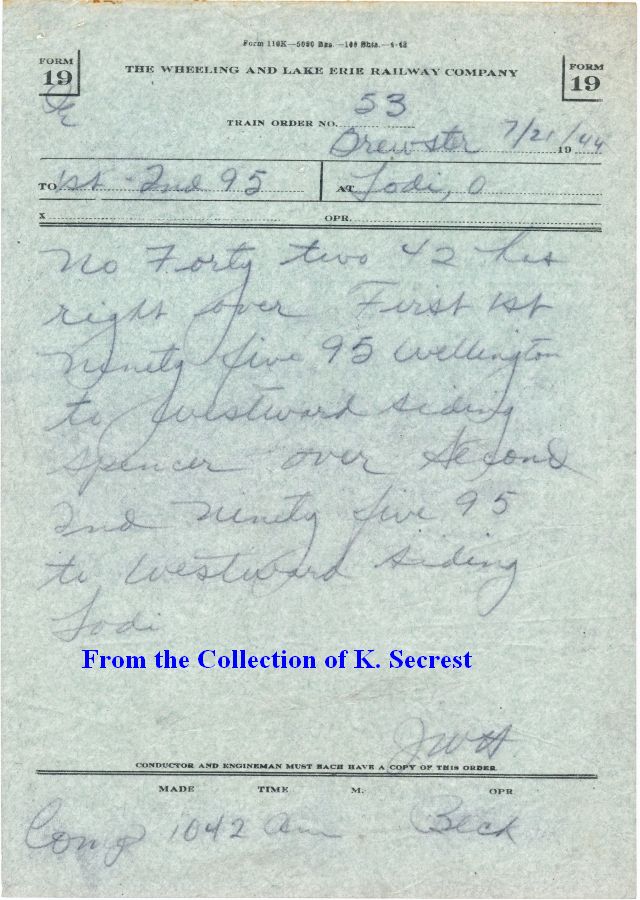 Form 119K—5000 Bks.—100 Shts.—4-42
FORM
19
THE WHEELING AND LAKE ERIE RAILWAY COMPANY
FORM
19
TRAIN ORDER NO. 53
Brewster 7/21/1944
TO 1st - 2nd 95 AT Lodi, O
X OPR.
No Forty two 42 has
right over First 1st
Ninety five 95 Wellington
to Westward siding
Spencer over Second
2nd Ninety five 95
to Westward siding
Lodi
From the Collection of K. Secrest
JWH
CONDUCTOR AND ENGINEMAN MUST EACH HAVE A COPY OF THIS ORDER
MADE TIME M. OPR
Comp 1042 am Beck